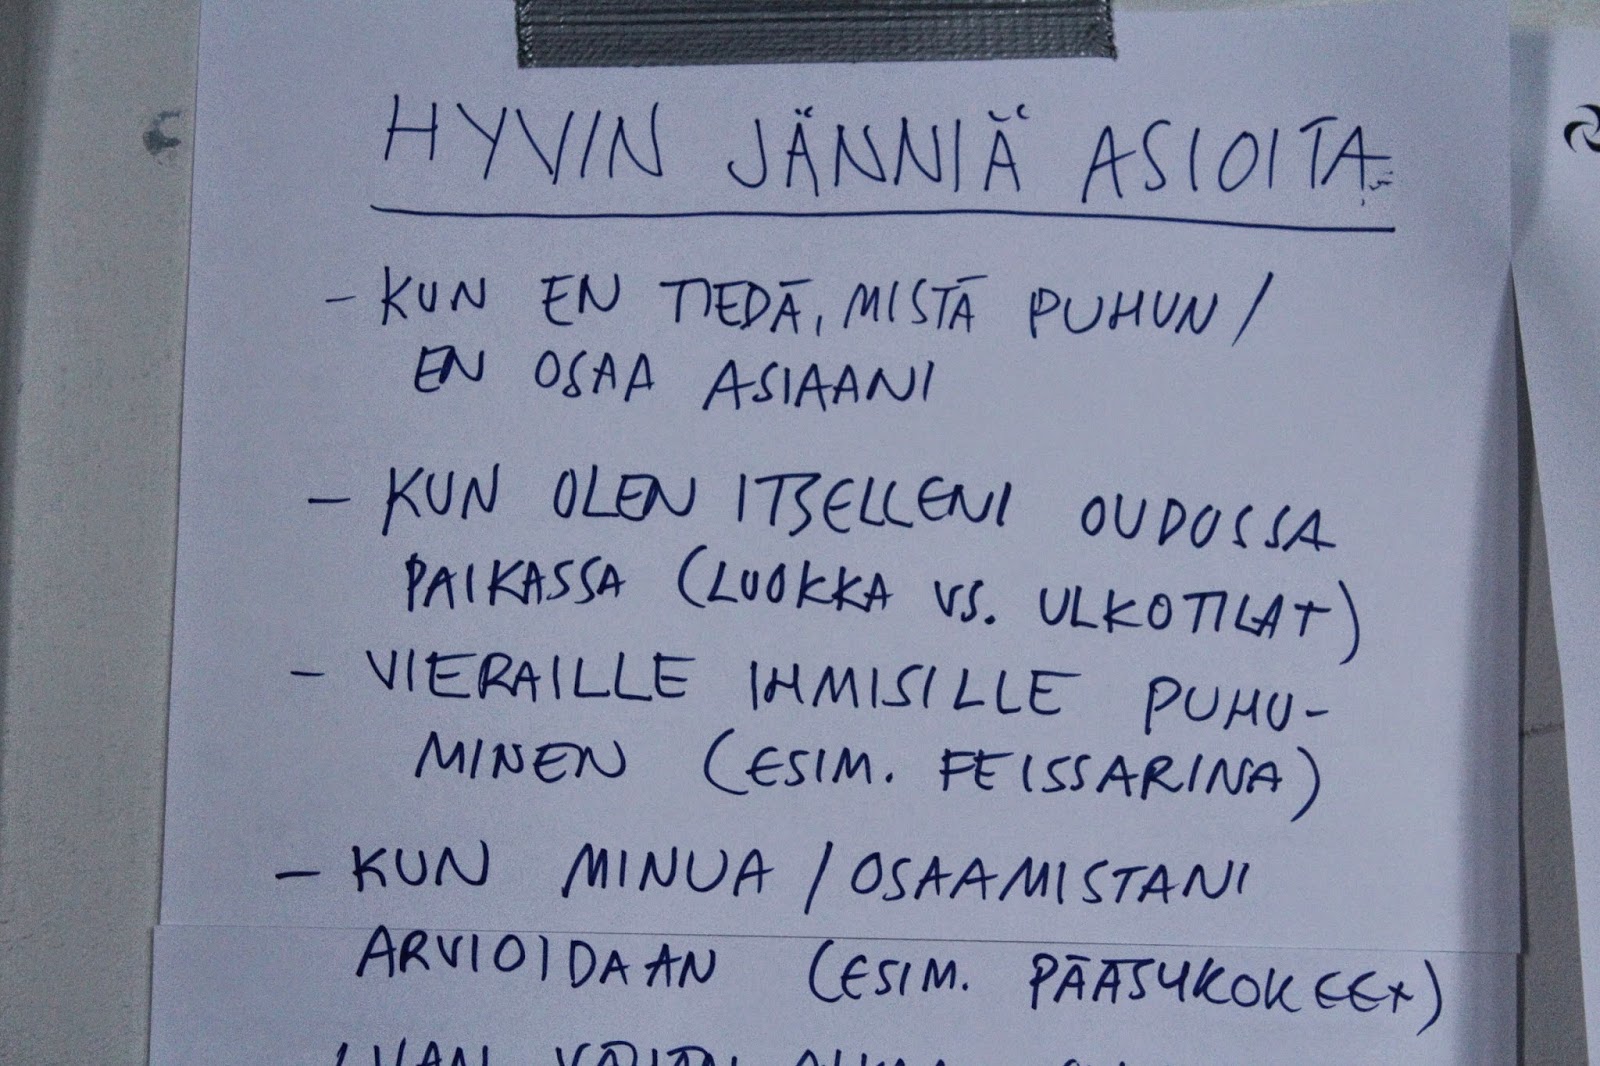 HYVIN JÄNNIÄ ASIOITA
- KUN EN TIEDÄ, MISTÄ PUHUN /
EN OSAA ASIAANI
- KUN OLEN ITSELLENI OUDOSSA
PAIKASSA (LUOKKA VS. ULKOTILAT)
- VIERAILLE IHMISILLE PUHU-
MINEN (ESIM. FEISSARINA)
- KUN MINUA / OSAAMISTANI
ARVIOIDAAN (ESIM. PÄÄSYKOKEET)